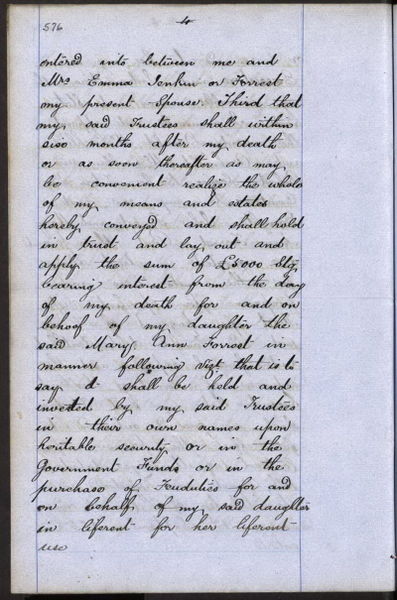 576
4
entered into between me and
Mrs Emma Jenkin or Forrest
my present Spouse. Third that
my said Trustees shall within
six months after my death
or as soon thereafter as may
be convenient realize the whole
of my means and estates
hereby conveyed and shall hold
in trust and lay out and
apply the sum of £5000 Stg
bearing interest from the day
of my death for and on
behoof of my daughter the
said Mary Ann Forrest in
manner following vizt that is to
say It shall be held and
invested by my said Trustees
in their own names upon
heritable security or in the
Government Funds or in the
purchase of Feuduties for and
on behalf of my said daughter
in liferent for her liferent
use